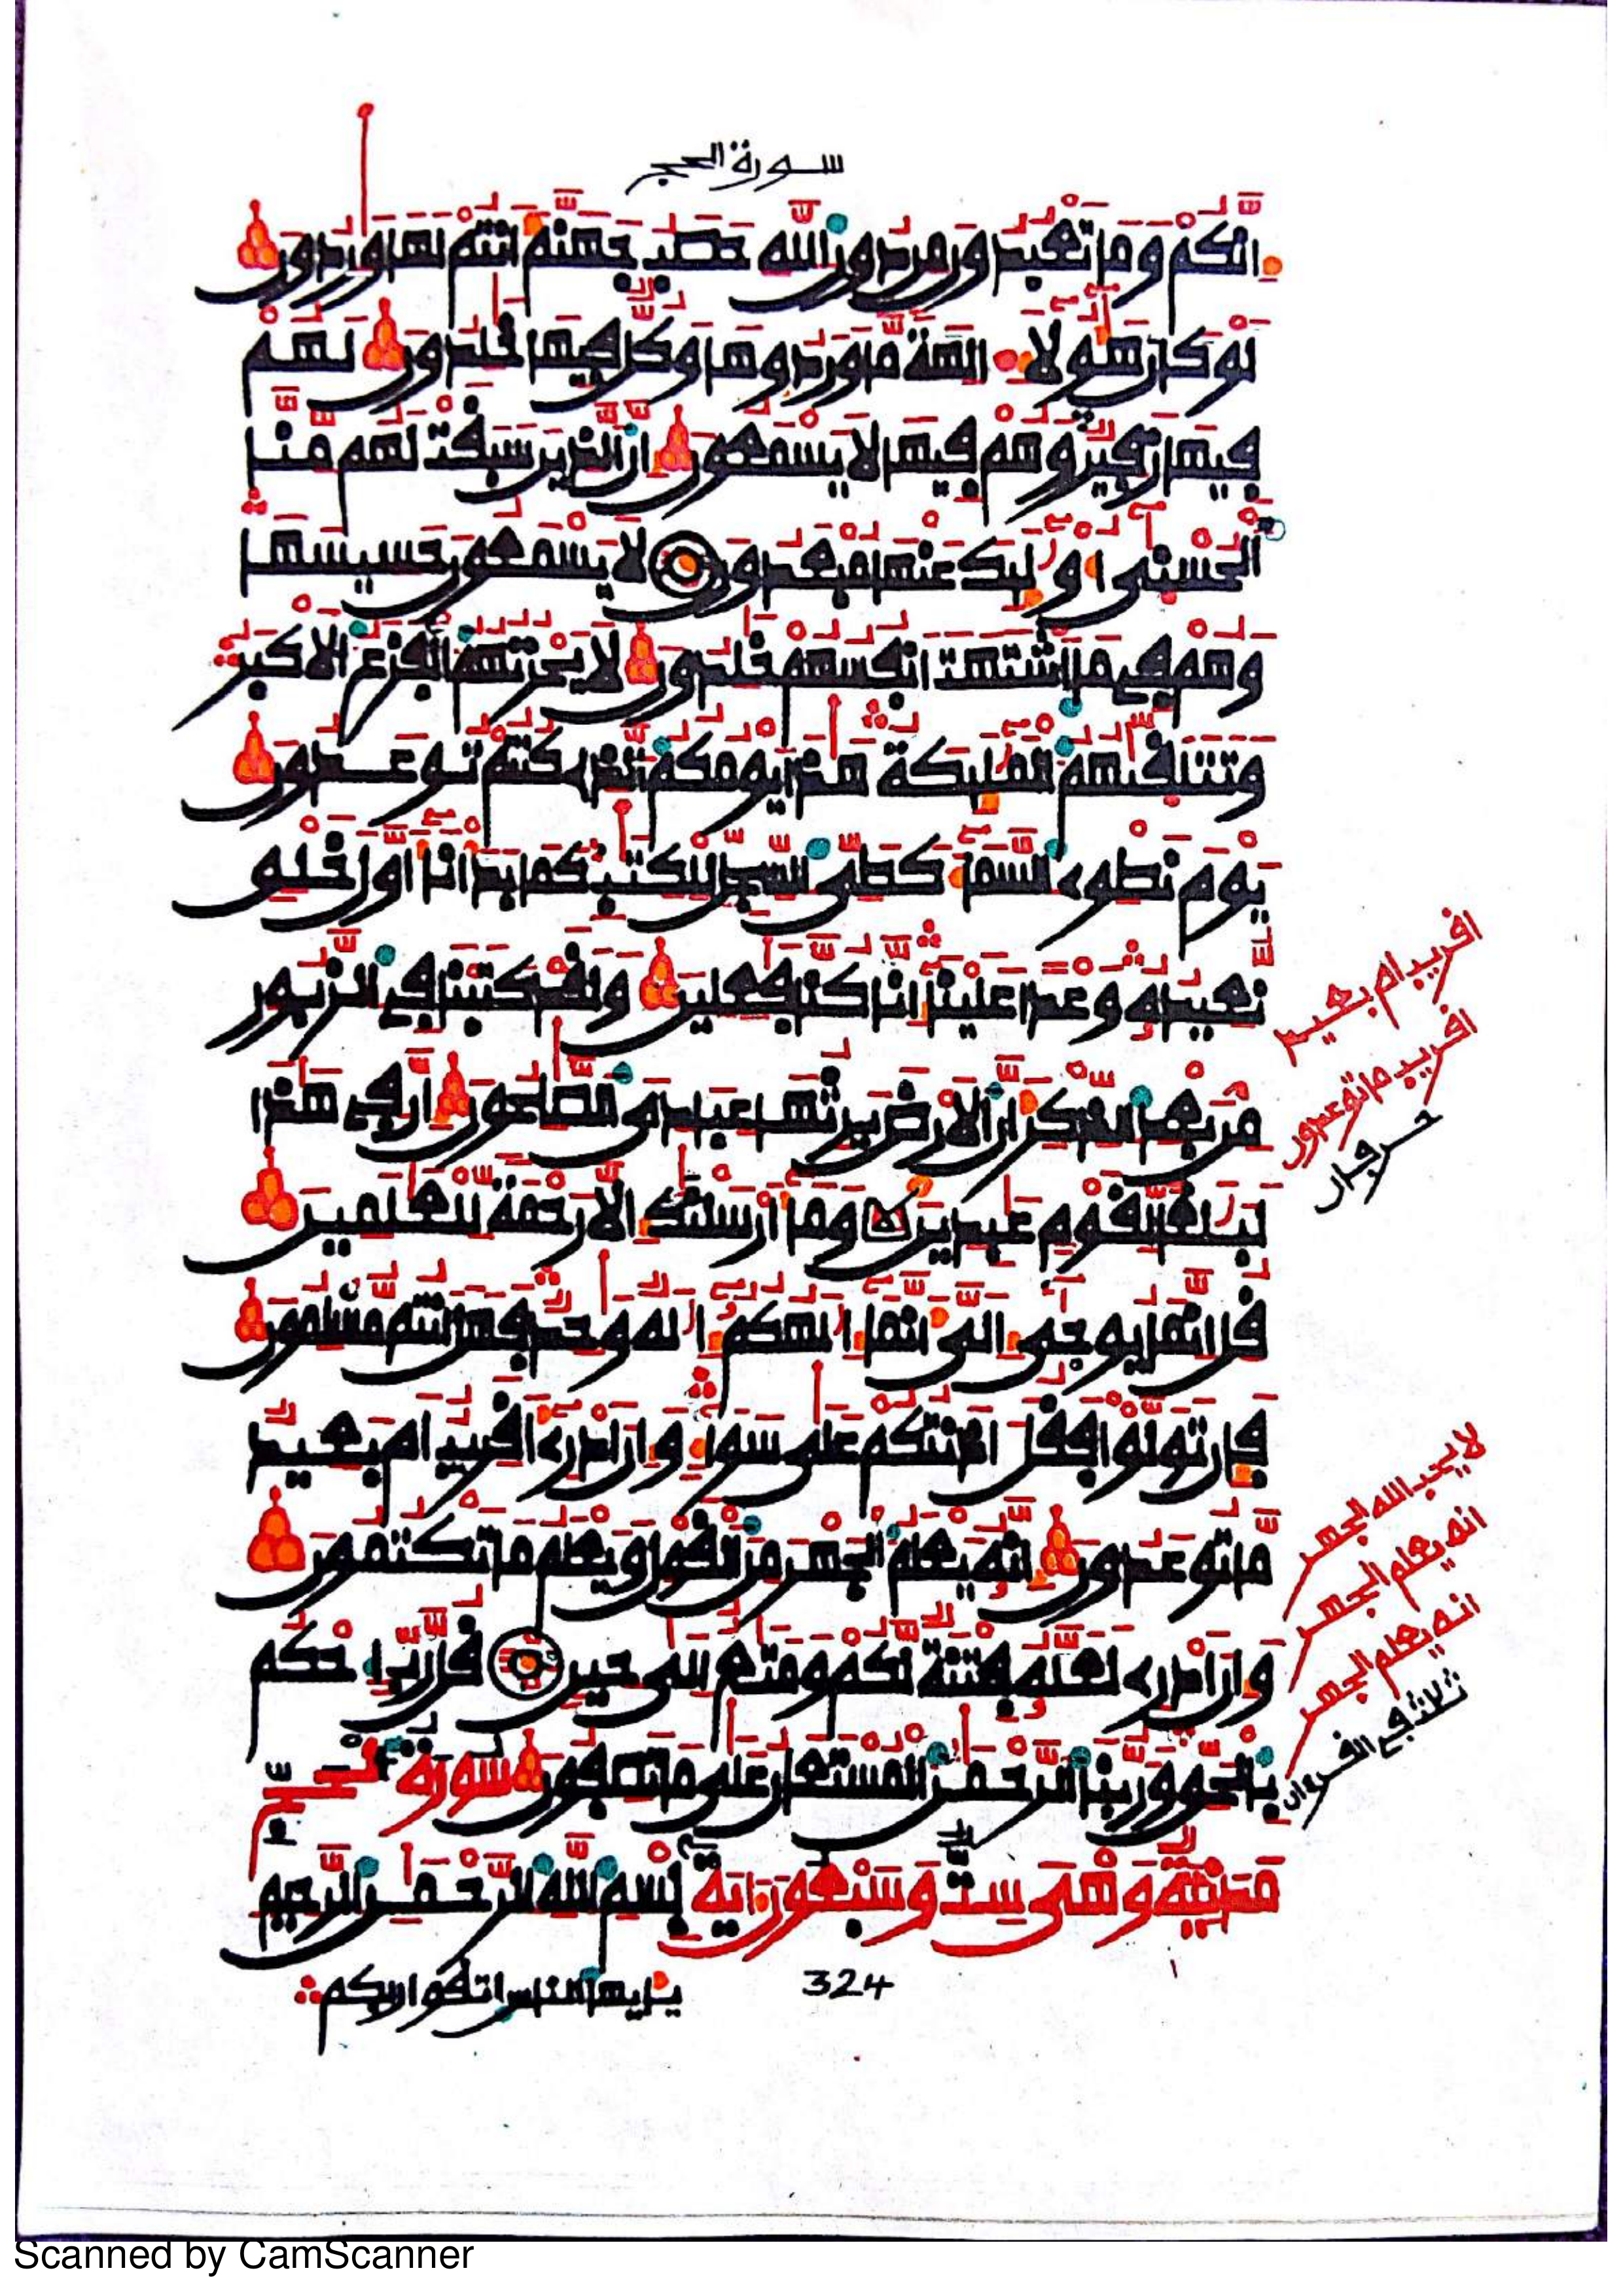 سورة الحج
إنكم وما تعبدون من دون الله حصب جهنم أنتم لها وردون
لو كان هؤلاء الهة ما وردوها وكل فيها خلدون لهم
فيها زفير وهم فيها لا يسمعون إن الذين سبقت لهم منا
الحسنى أوليك عنها مبعدون لا يسمعون حسيسها
وهم في ما اشتهت أنفسهم خلدون لا يحزنهم الفزع الاكبر
وتتلقيهم المليكة هذا يومكم الذي كنتم توعدون
يوم نطوي السما كطي السجل للكتب كما بدأنا أول خلق
نعيده وعدا علينا إنا كنا فعلين ولقد كتبنا في الزبور
من بعد الذكر أن الارض يرثها عبادي الصلحون إن في هذا
لبلغا لقوم عبدين وما أرسلنك إلا رحمة للعلمين
قل إنما يوحى إلي أنما إلهكم إله وحد فهل أنتم مسلمون
فإن تولوا فقل اذنتكم على سوا وإن أدري أقريب أم بعيد
ما توعدون إنه يعلم الجهر من القول ويعلم ما تكتمون
وإن أدري لعله فتنة لكم ومتع إلى حين قل رب احكم
بالحق وربنا الرحمن المستعان على ما تصفون سورة الحج
مدنية وهي ست وسبعون اية بسم الله الرحمن الرحيم
يايها الناس اتقوا ربكم
324
اقريب ام بعيد
اقريب ما توعدون
حرفان
لا يحب الله الجهر
انه يعلم الجهر
انه يعلم الجهر
ثلاث في القرءان
Scanned by CamScanner